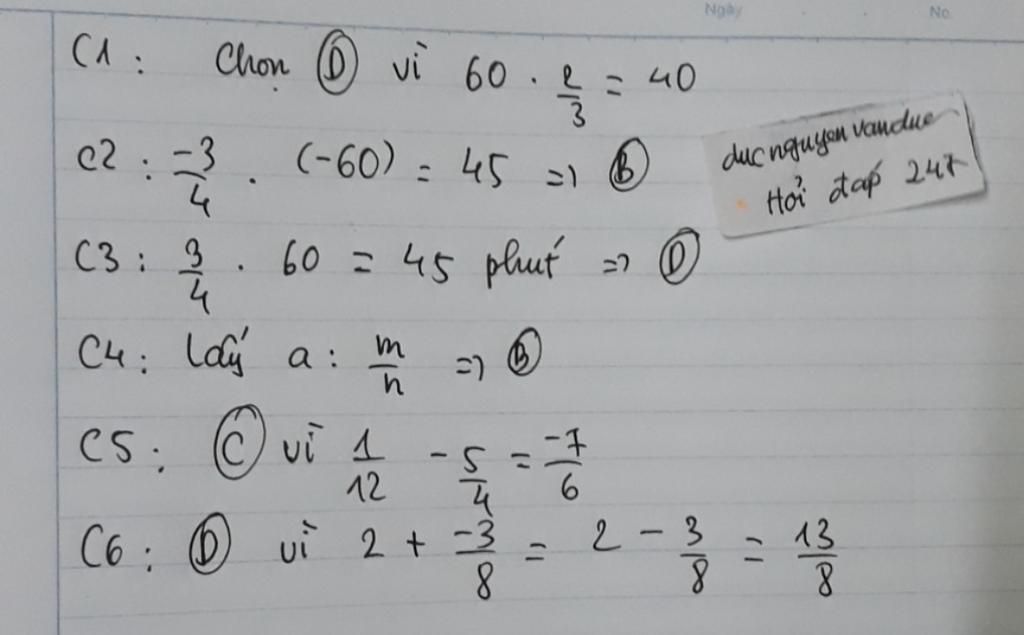 Ngày
No.
C1: Chọn D vì 60 . 2/3 = 40
C2: -3/4 . (-60) = 45 => B
ducnguyenvanduc
Hỏi đáp 247
C3: 3/4 . 60 = 45 phút => D
C4: Lấy a : m/n => B
C5: C vì 1/12 - 5/4 = -7/6
C6: D vì 2 + -3/8 = 2 - 3/8 = 13/8